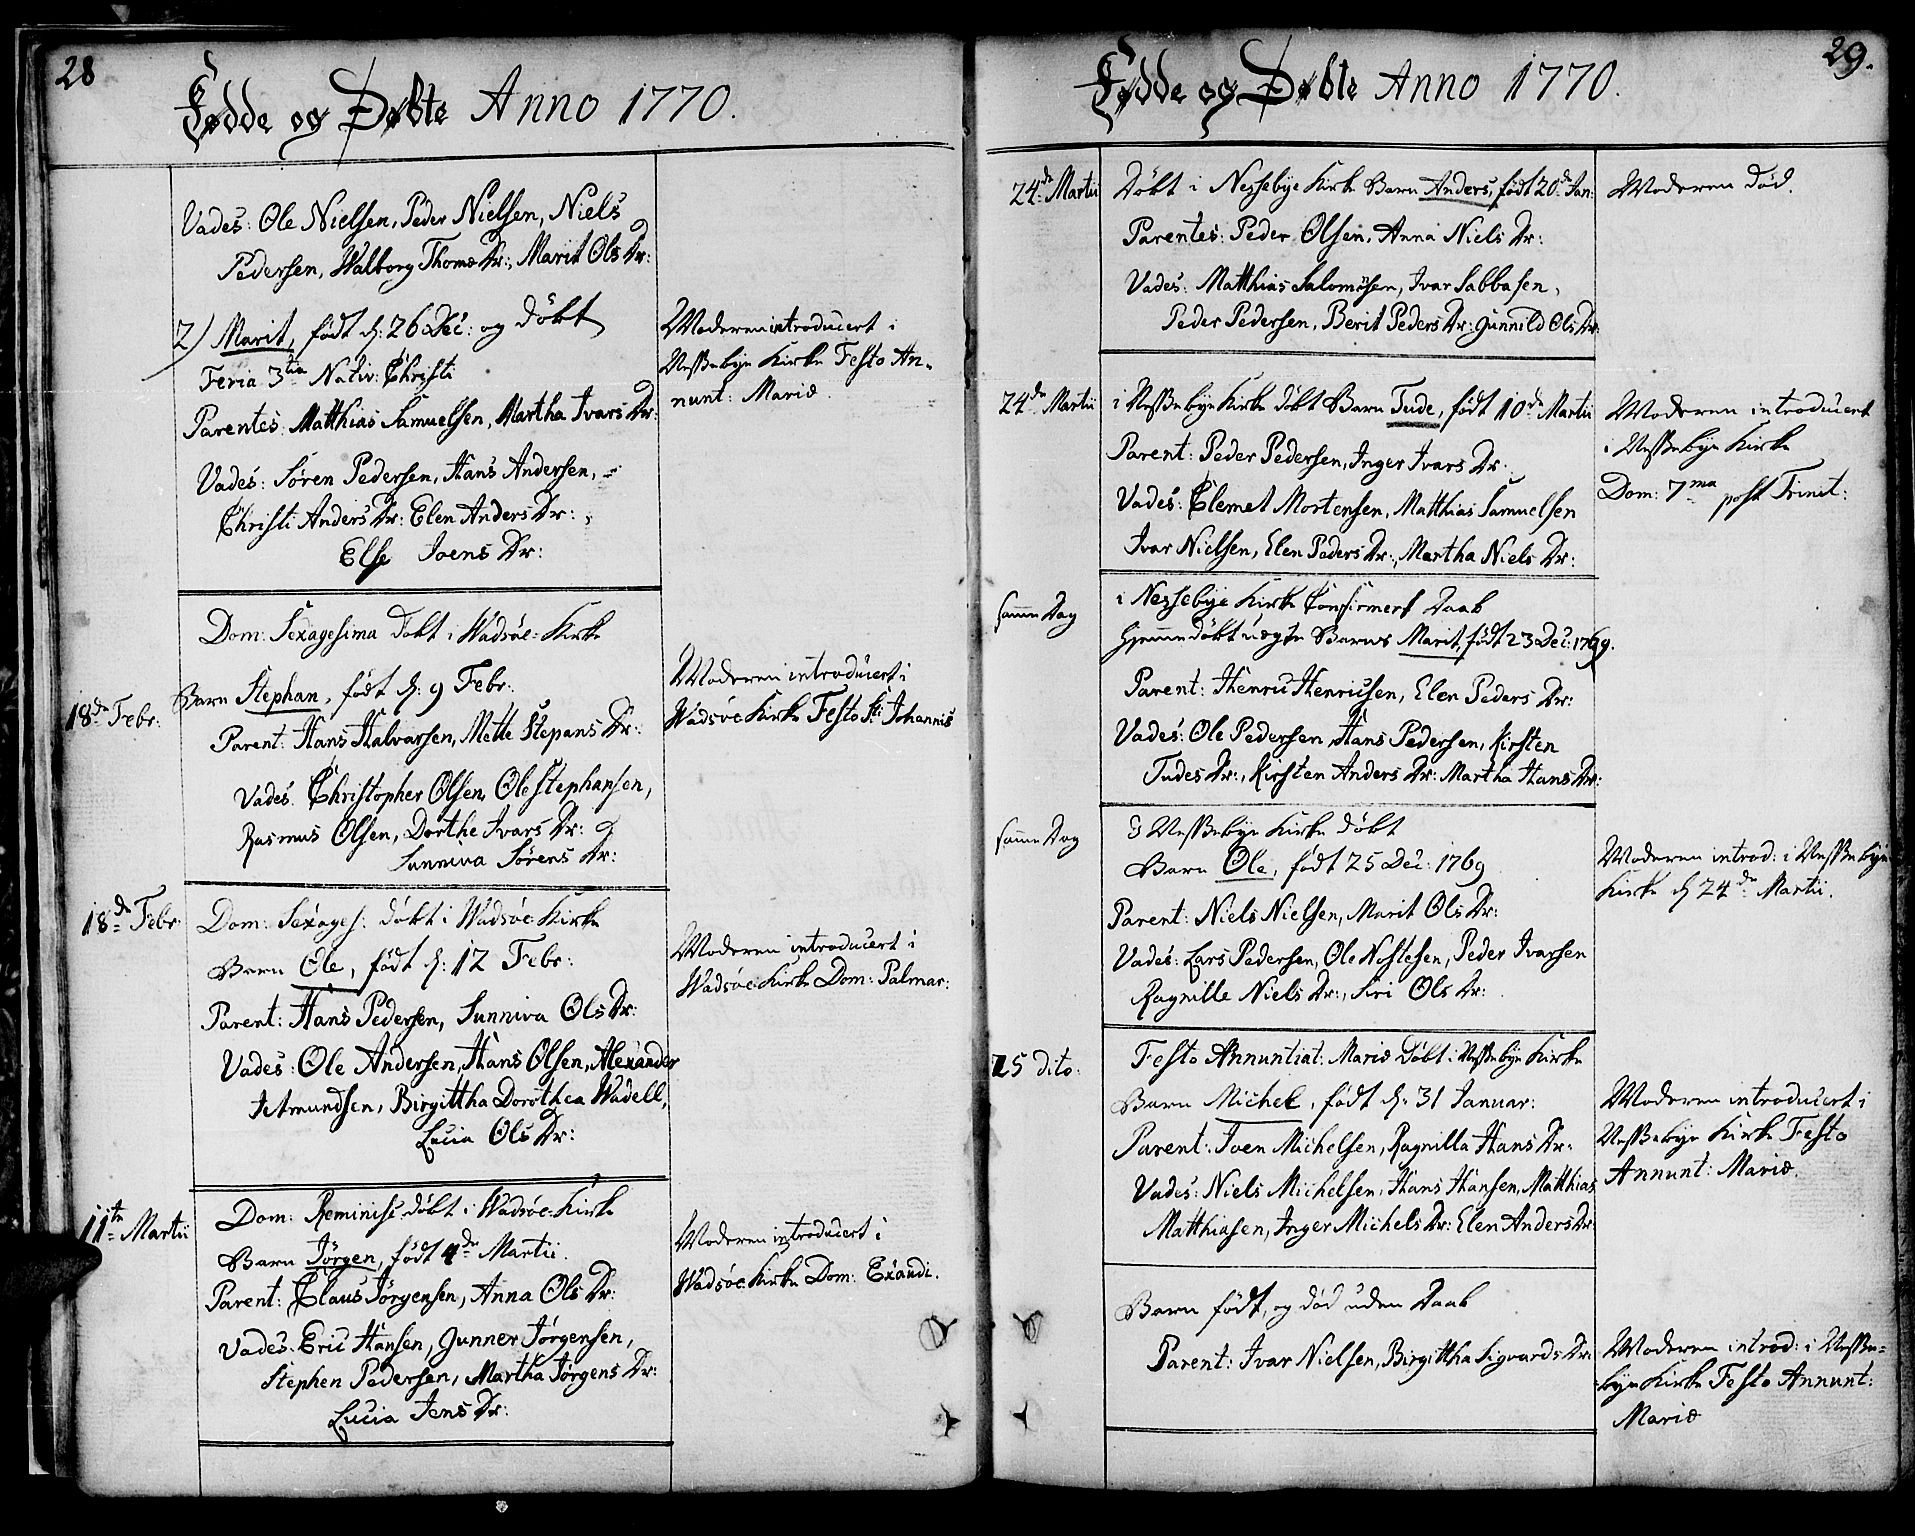 28
Fødde og Døbte Anno 1770.
Vades: Ole Nielsen, Peder Nielsen, Niels
Pedersen, Walborg Thomæ Dr:, Marit Ols Dr:
2) Marit, født d: 26 Dec: og döbt
Feria 3tia Nativ: Christi
Parentes: Matthias Samuelsen, Martha Ivars Dr:
Vades: Søren Pedersen, Hans Andersen,
Christi Anders Dr: Elen Anders Dr:
Else Joens Dr:
Moderen introducert i
Nessebye Kirke Festo An-
nunt: Mariæ.
18de Febr:
Dom: Sexagesima döbt i Wadsöe Kirke
Barn Stephan, født d: 9 Febr:
Parent: Hans Halvarsen, Mette Stepans Dr:
Vades: Christopher Olsen, Ole Stephansen,
Rasmus Olsen, Dorthe Ivars Dr: og
Sunniva Sørens Dr:
Moderen introducert i
Wadsöe Kirke Festo Sti: Johannis
18de Febr:
Dom: Sexages: döbt i Wadsöe Kirke
Barn Ole, født d: 12 Febr:
Parent: Hans Pedersen, Sunniva Ols Dr:
Vades: Ole Andersen, Hans Olsen, Alexander
Jetmundsen, Birgittha Dorothea Wadell,
Lucia Ols Dr:
Moderen introducert i
Wadsöe Kirke Dom: Palmar:
11te Martii
Dom: Reminisc: döbt i Wadsöe Kirke
Barn Jörgen, født 4de Martii.
Parent: Claus Jörgensen, Anna Ols Dr:
Vades: Eric Hansen, Gunner Jörgensen,
Stephen Pedersen, Martha Jörgens Dr:
Lucia Jens Dr:
Moderen introducert i
Wadsöe Kirke Dom: Exaudi.
29.
Fødde og Døbte Anno 1770.
24de Martii
Döbt i Nessebye Kirke Barn Anders, født 20de Jan:
Parentes: Peder Olsen, Anna Niels Dr:
Vades: Matthias Salomøsen, Ivar Sabbasen,
Peder Pedersen, Berit Peders Dr: Gunnild Ols Dr:
Moderen død.
24de Martii
i Nessebye Kirke döbt Barn Tude, født 10de Martii
Parent: Peder Pedersen, Inger Ivars Dr:
Vades: Clemet Mortensen, Matthias Samuelsen
Ivar Nielsen, Elen Peders Dr:, Martha Niels Dr:
Moderen introducert
i Nessebye Kirke
Dom: 7ma post Trinit:
samme Dag
i Nessebye Kirke Confirmert Daab
hjemmedöbt uægte Barns Marit, født 23 Dec: 1769.
Parent: Henric Henricsen, Elen Peders Dr:
Vades: Ole Pedersen, Hans Pedersen, Kirsten
Tudes Dr:, Kirsten Anders Dr: Martha Hans Dr:
samme Dag
I Nessebye Kirke döbt
Barn Ole, født 25 Dec: 1769
Parent: Niels Nielsen, Marit Ols Dr:
Vades: Lars Pedersen, Ole Nielsen, Peder Ivarsen
Ragnille Niels Dr:, Siri Ols Dr:
Moderen introd: i Nessebye
Kirke d: 24de Martii.
25 dito.
Festo Annuntiat: Mariæ Döbt i Nessebye Kirke
Barn Michel, født d: 31 Januar:
Parent: Joen Michelsen, Ragnilla Hans Dr:
Vades: Niels Michelsen, Hans Hansen, Matthias
Matthiasen, Inger Michels Dr: Elen Anders Dr:
Moderen introducert i
Nessebye Kirke Festo
Annunt: Mariæ.
Barn født, og död uden Daab
Parent: Ivar Nielsen, Birgittha Sigvards Dr:
Moderen introd: i Nesse-
bye Kirke Festo Annunt:
Mariæ